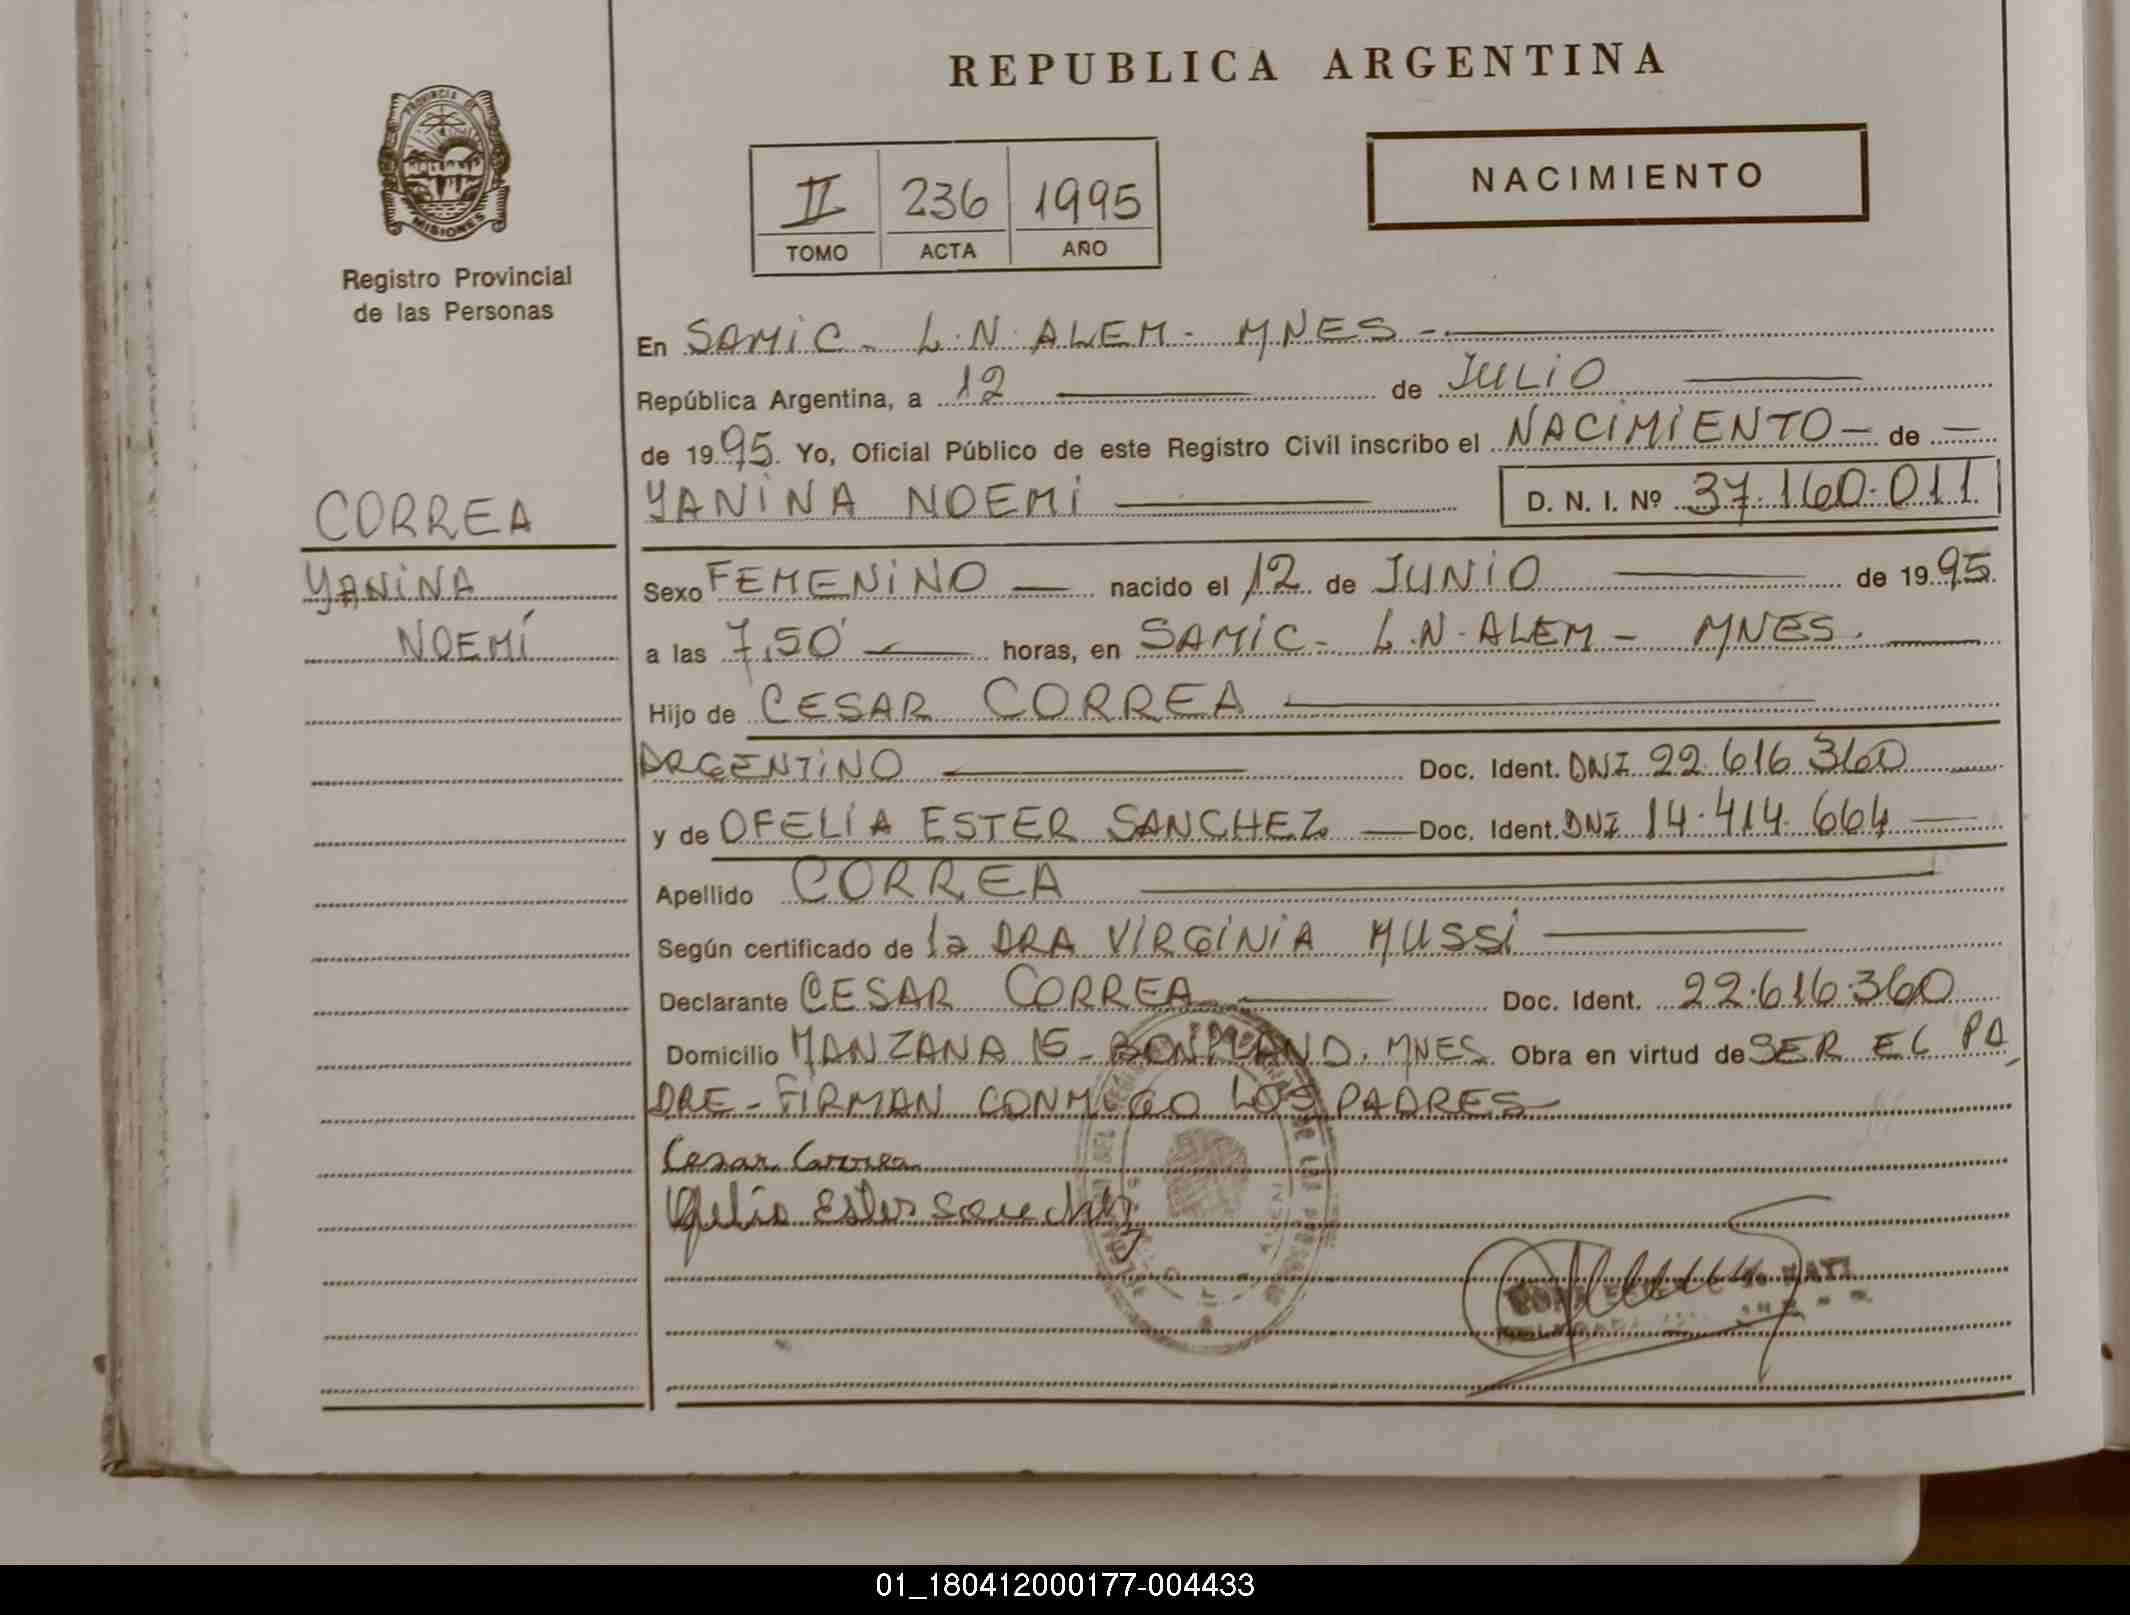 REPUBLICA ARGENTINA
PROVINCIA DE
MISIONES
Registro Provincial
de las Personas
II 236 1995
TOMO ACTA AÑO
NACIMIENTO
En SAMIC - L.N. ALEM - MNES -
República Argentina, a 12 de JULIO
de 1995. Yo, Oficial Público de este Registro Civil inscribo el NACIMIENTO - de -
YANINA NOEMI D. N. I. Nº 37.160.011
CORREA
YANINA
NOEMÍ
Sexo FEMENINO nacido el 12 de JUNIO de 1995.
a las 7,50' horas, en SAMIC - L.N. ALEM - MNES.
Hijo de CESAR CORREA
ARGENTINO Doc. Ident. DNI 22.616.360
y de OFELIA ESTER SANCHEZ Doc. Ident. DNI 14.414.664
Apellido CORREA
Según certificado de la DRA VIRGINIA MUSSI
Declarante CESAR CORREA Doc. Ident. 22.616.360
Domicilio MANZANA 15 - BONPLAND. MNES Obra en virtud de SER EL PA
DRE - FIRMAN CONMIGO LOS PADRES
Cesar Correa
Ofelia Ester Sanchez
01_180412000177-004433